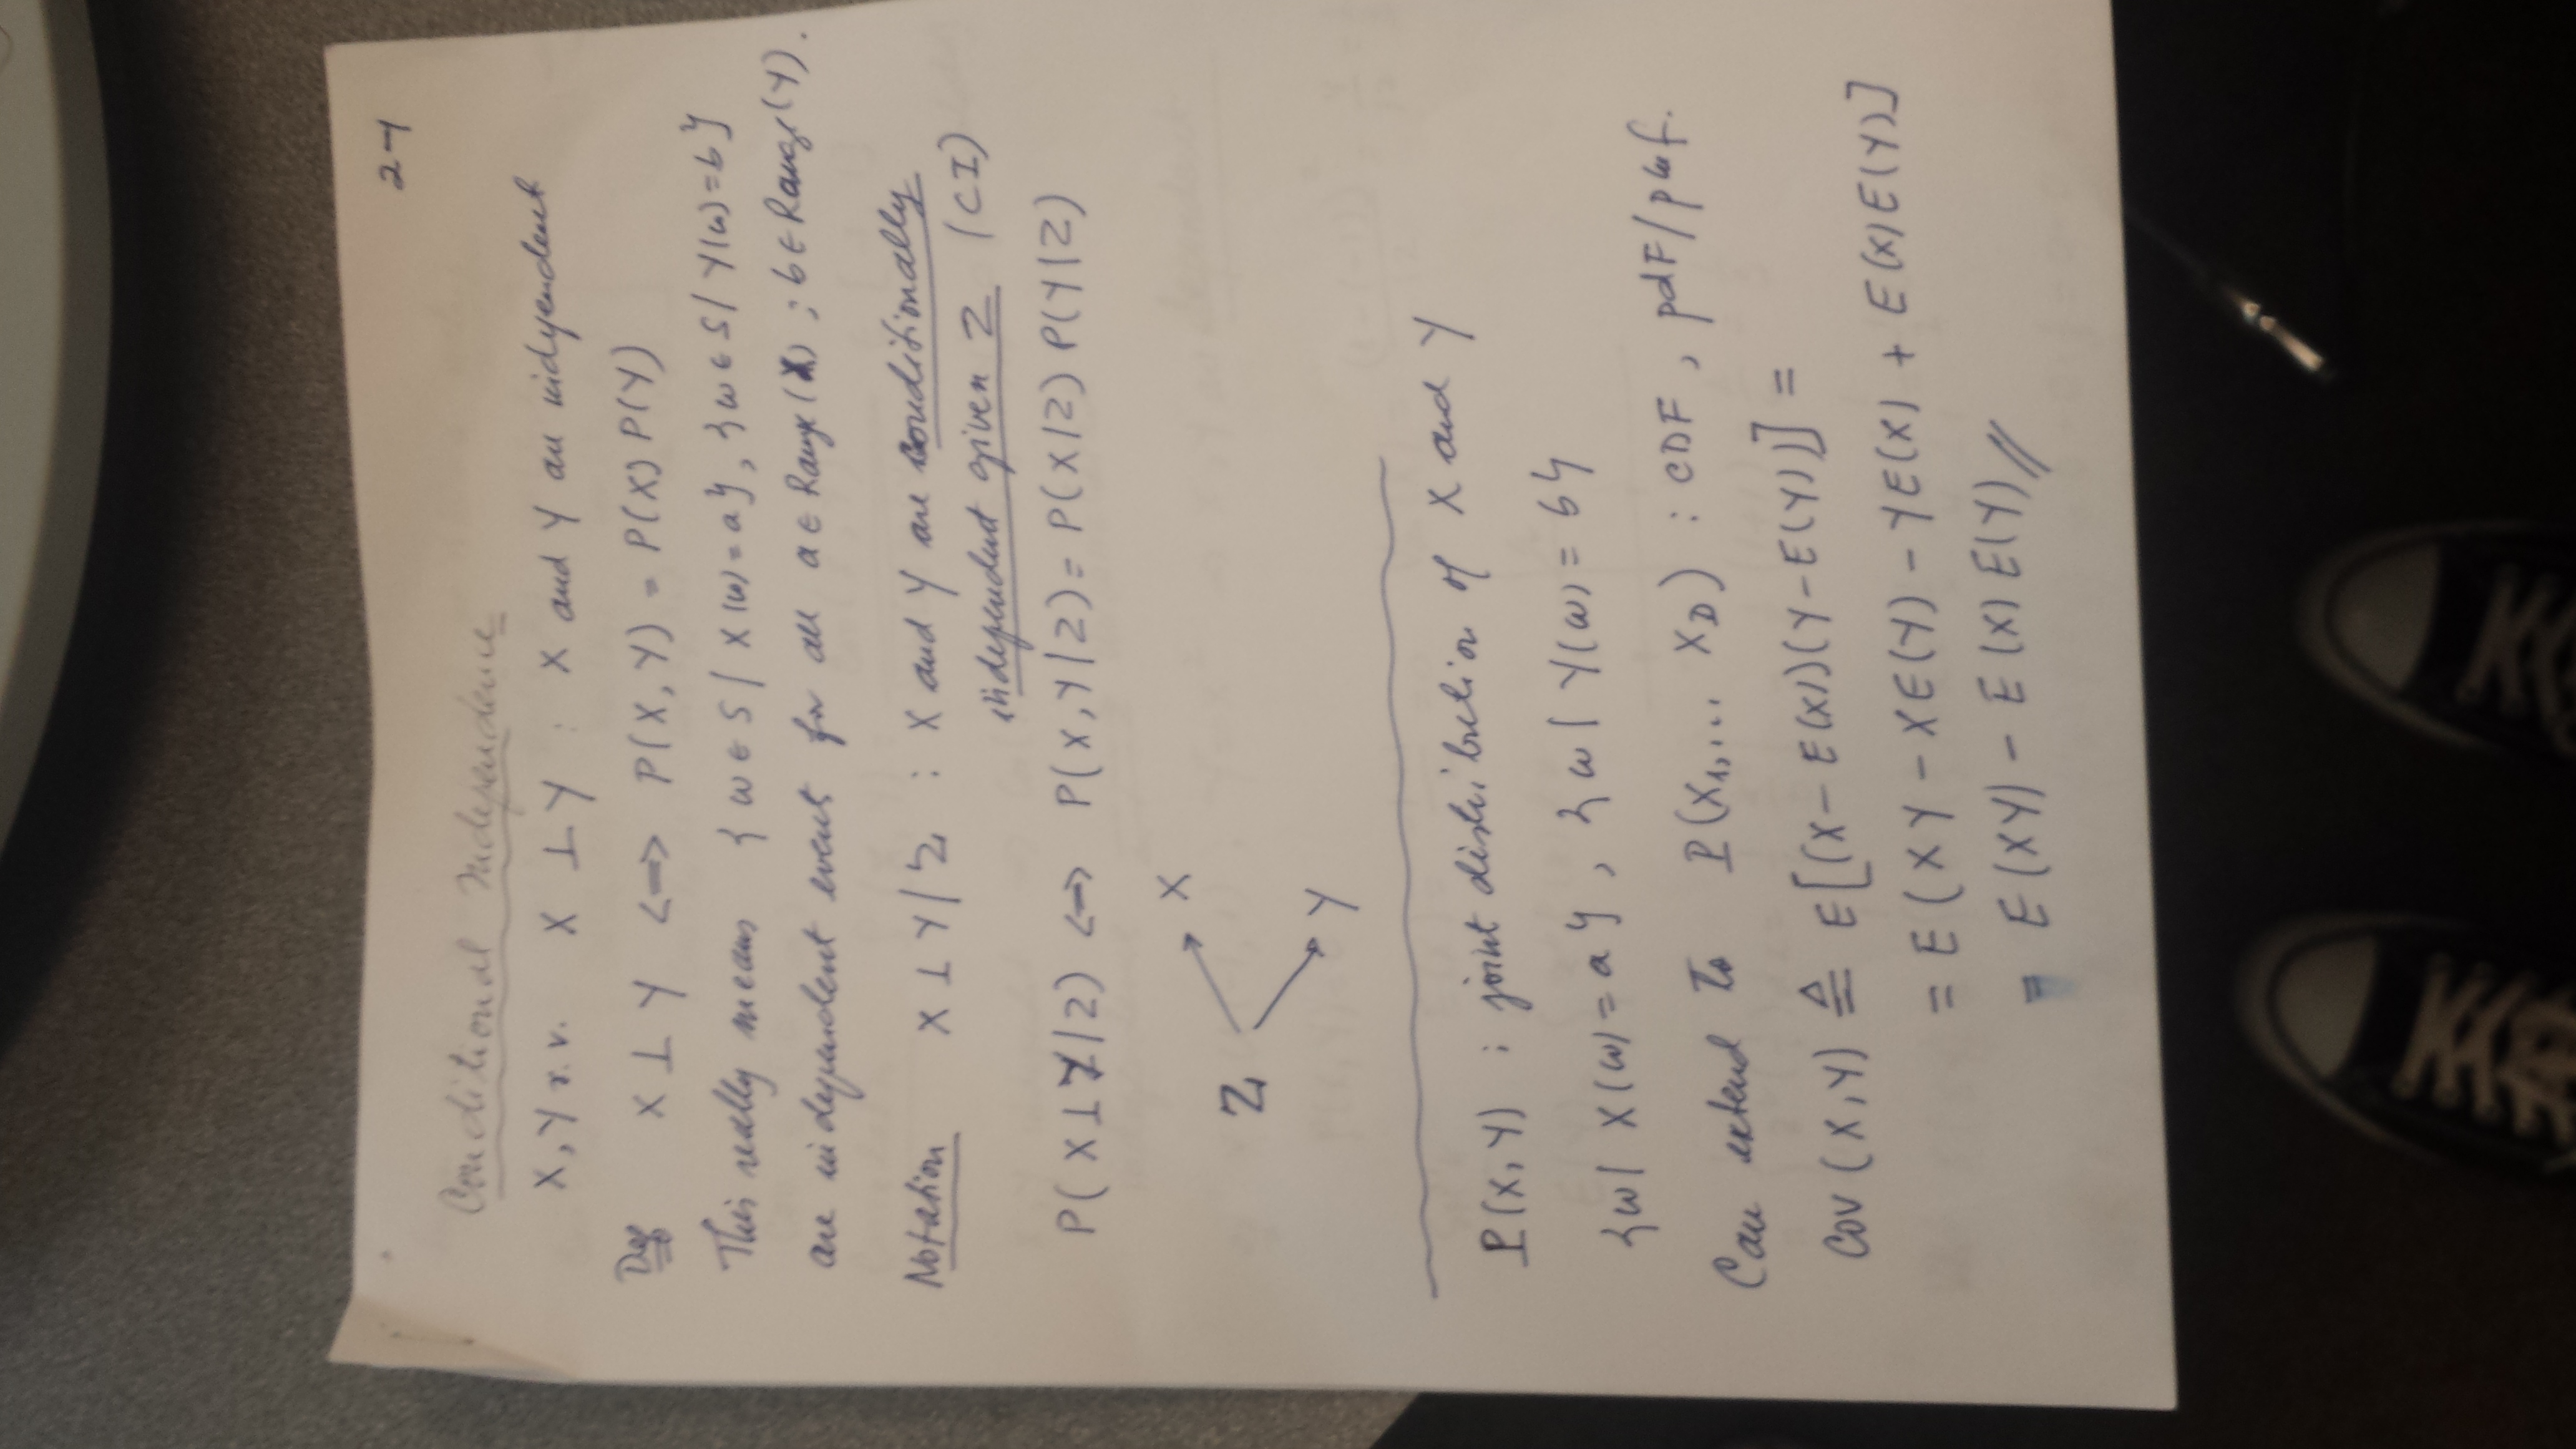 2-1
Conditional Independence
X, Y r.v. X ⊥ Y : X and Y are independent
Def X ⊥ Y <=> P(X,Y) = P(X) P(Y)
This really means {ω∈S | X(ω)=a}, {ω∈S | Y(ω)=b}
are independent event for all a∈Range(X) ; b∈Range(Y).
Notation X ⊥ Y | Z : X and Y are conditionally
independent given Z (CI)
P(X ⊥ Y | Z) <=> P(X,Y|Z) = P(X|Z) P(Y|Z)
X
Z
Y
P(X,Y) : joint distribution of X and Y
{ω | X(ω)=a}, {ω | Y(ω)=b}
Can extend to P(X₁,... X_D) : CDF, pdF/pmf.
Cov(X,Y) ≜ E[(X-E(X))(Y-E(Y))] =
= E(XY - XE(Y) - YE(X) + E(X)E(Y)]
= E(XY) - E(X)E(Y)//